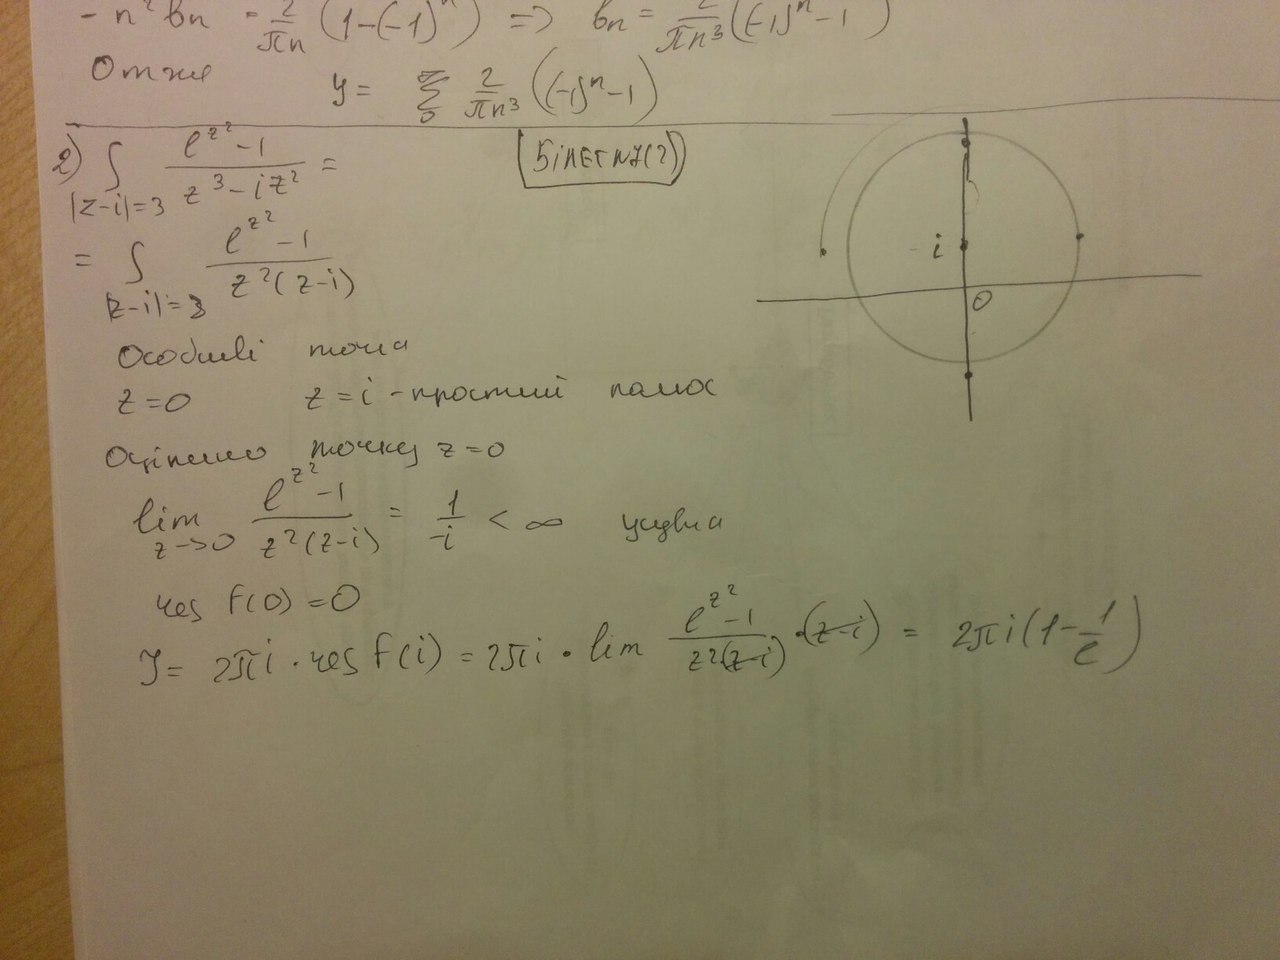 - n² bn = 2/πn (1-(-1)ⁿ) => bn = 2/πn³ ((-1)ⁿ-1)
Отже y = Σ 2/πn³ ((-1)ⁿ-1)
2) ∫ |z-i|=3 (e^z² -1)/(z³-iz²) =
БІЛЕТ №1(2)
= ∫ |z-i|=3 (e^z² -1)/(z²(z-i))
i
0
Особливі точки
z=0 z=i - простий полюс
Оцінимо точку z=0
lim z->0 (e^z² -1)/(z²(z-i)) = 1/-i < ∞ усувна
res f(0) = 0
J = 2πi · res f(i) = 2πi · lim (e^z² -1)/(z²(z-i)) ·(z-i) = 2πi(1-1/e)